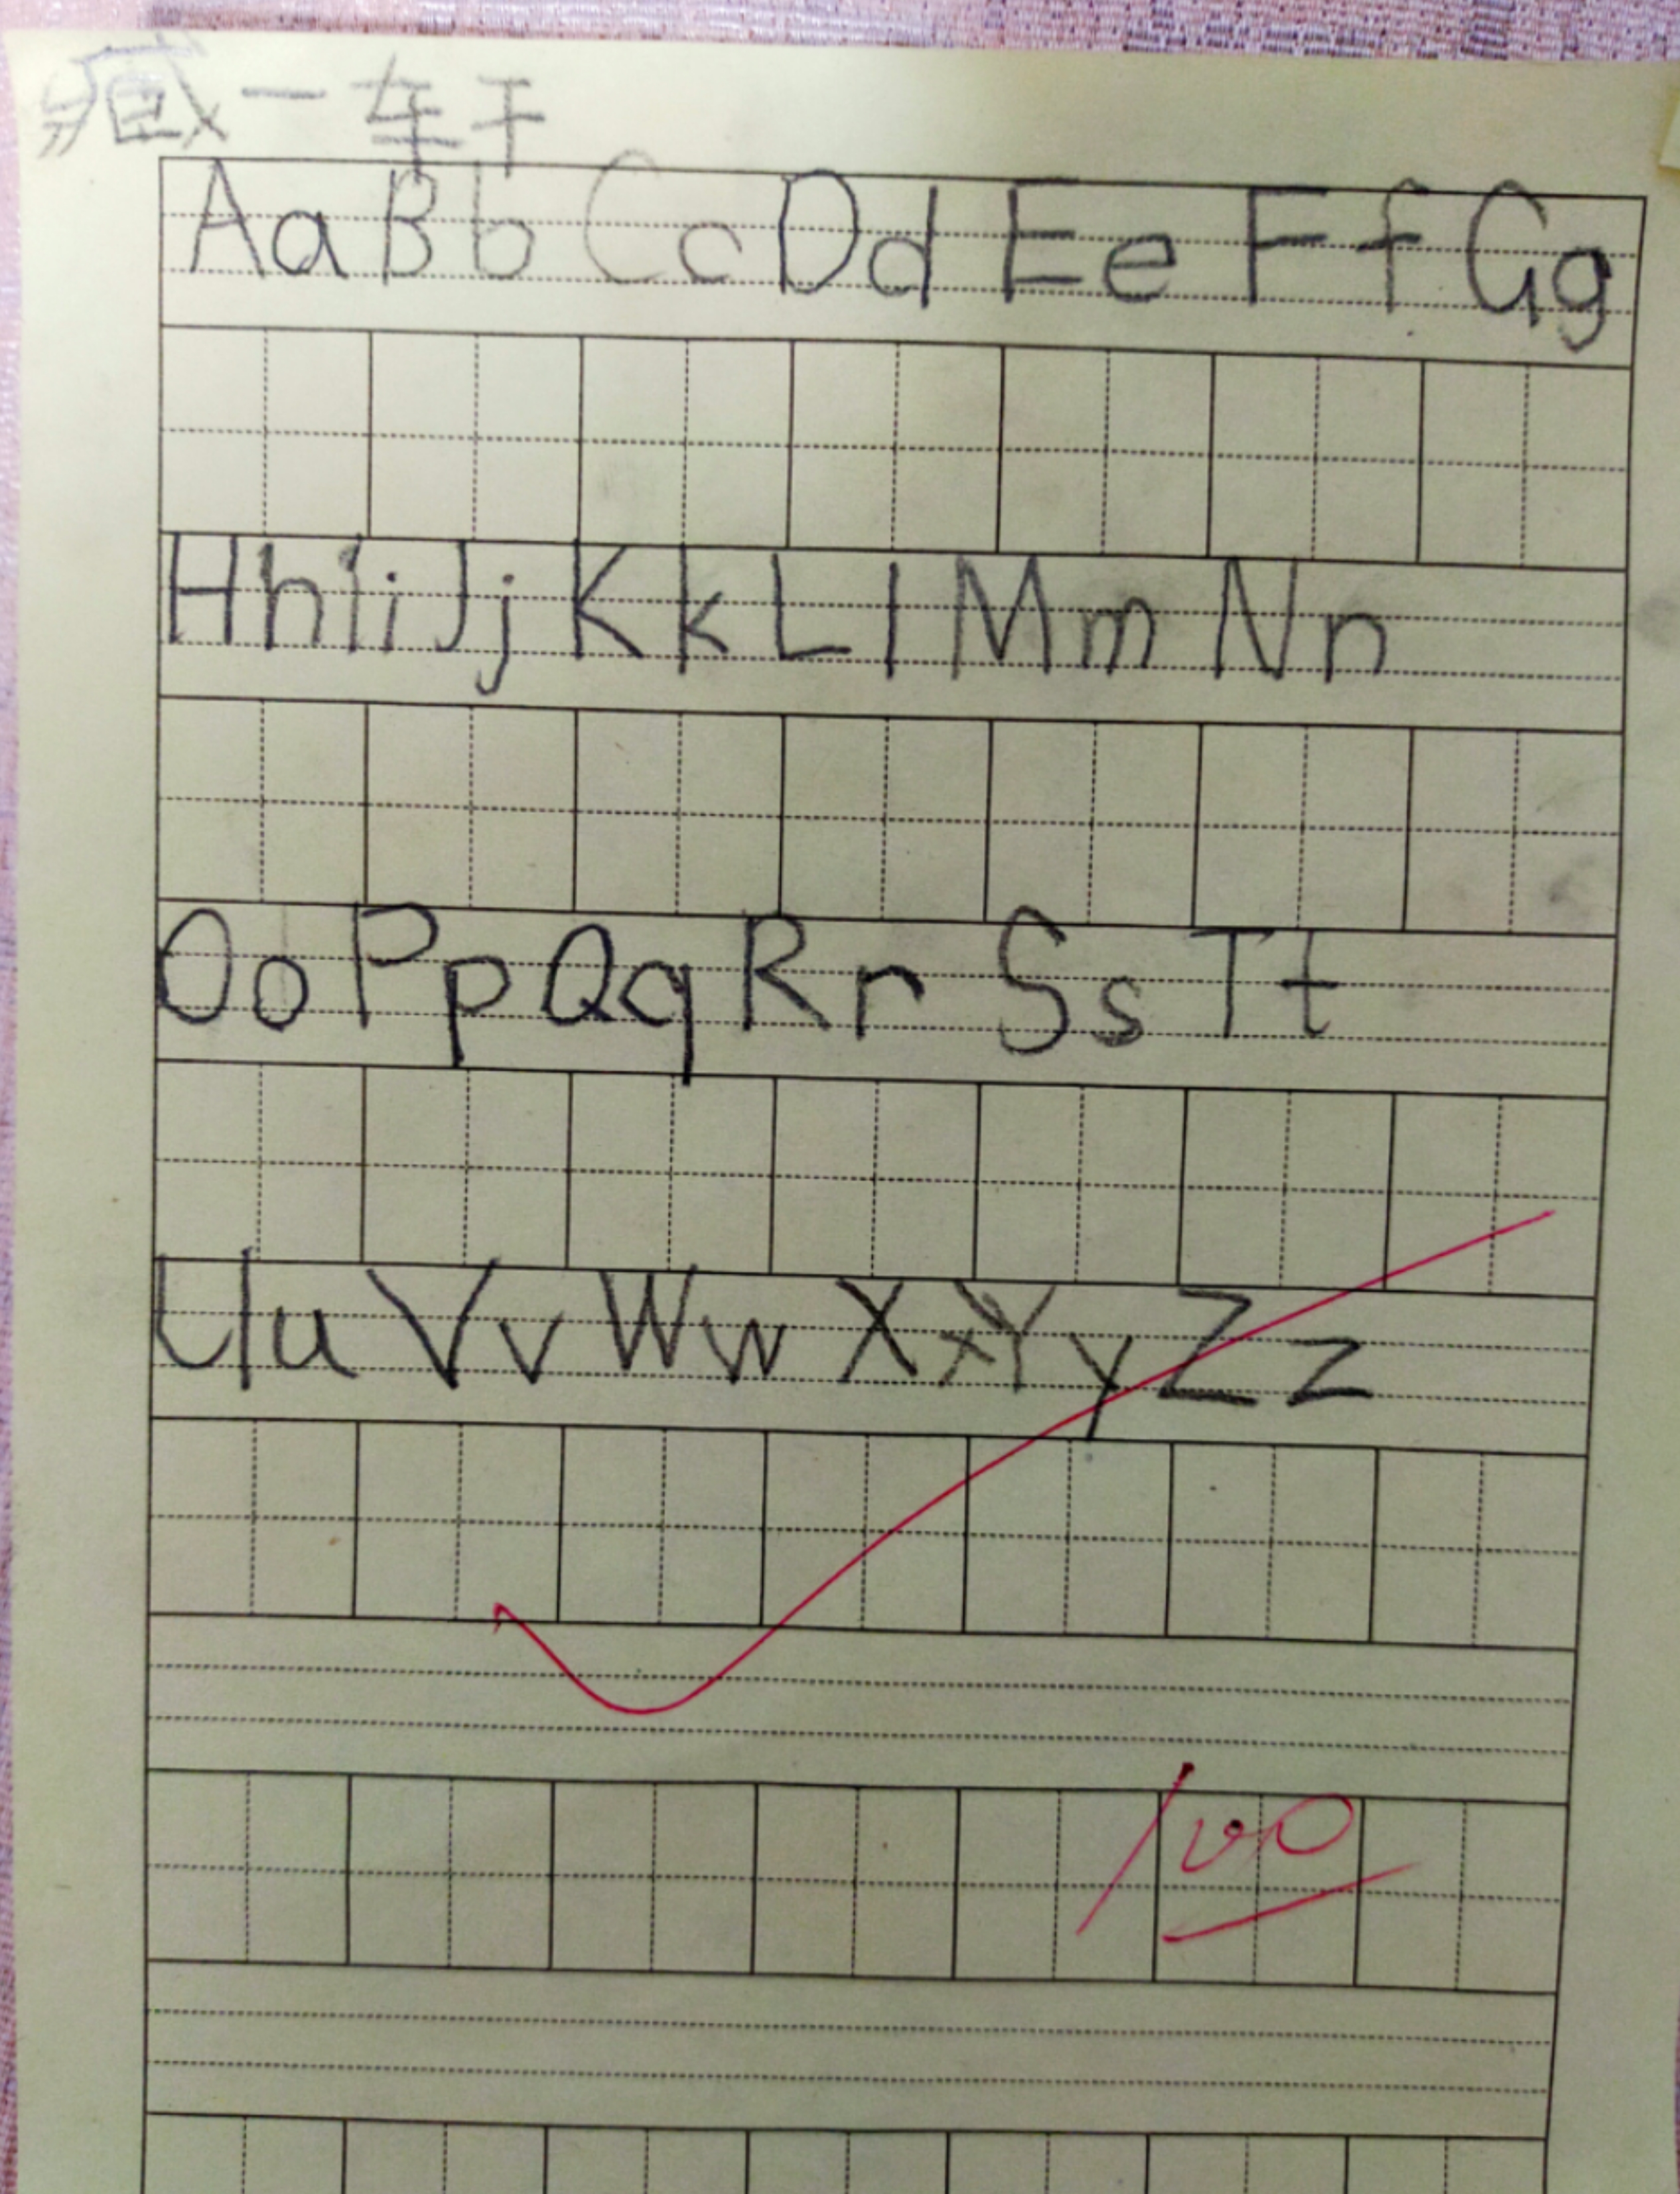 臧一轩
AaBbCcDdEeFfGg
HhIiJjKkLlMmNn
OoPpQqRrSsTt
UuVvWwXxYyZz
100